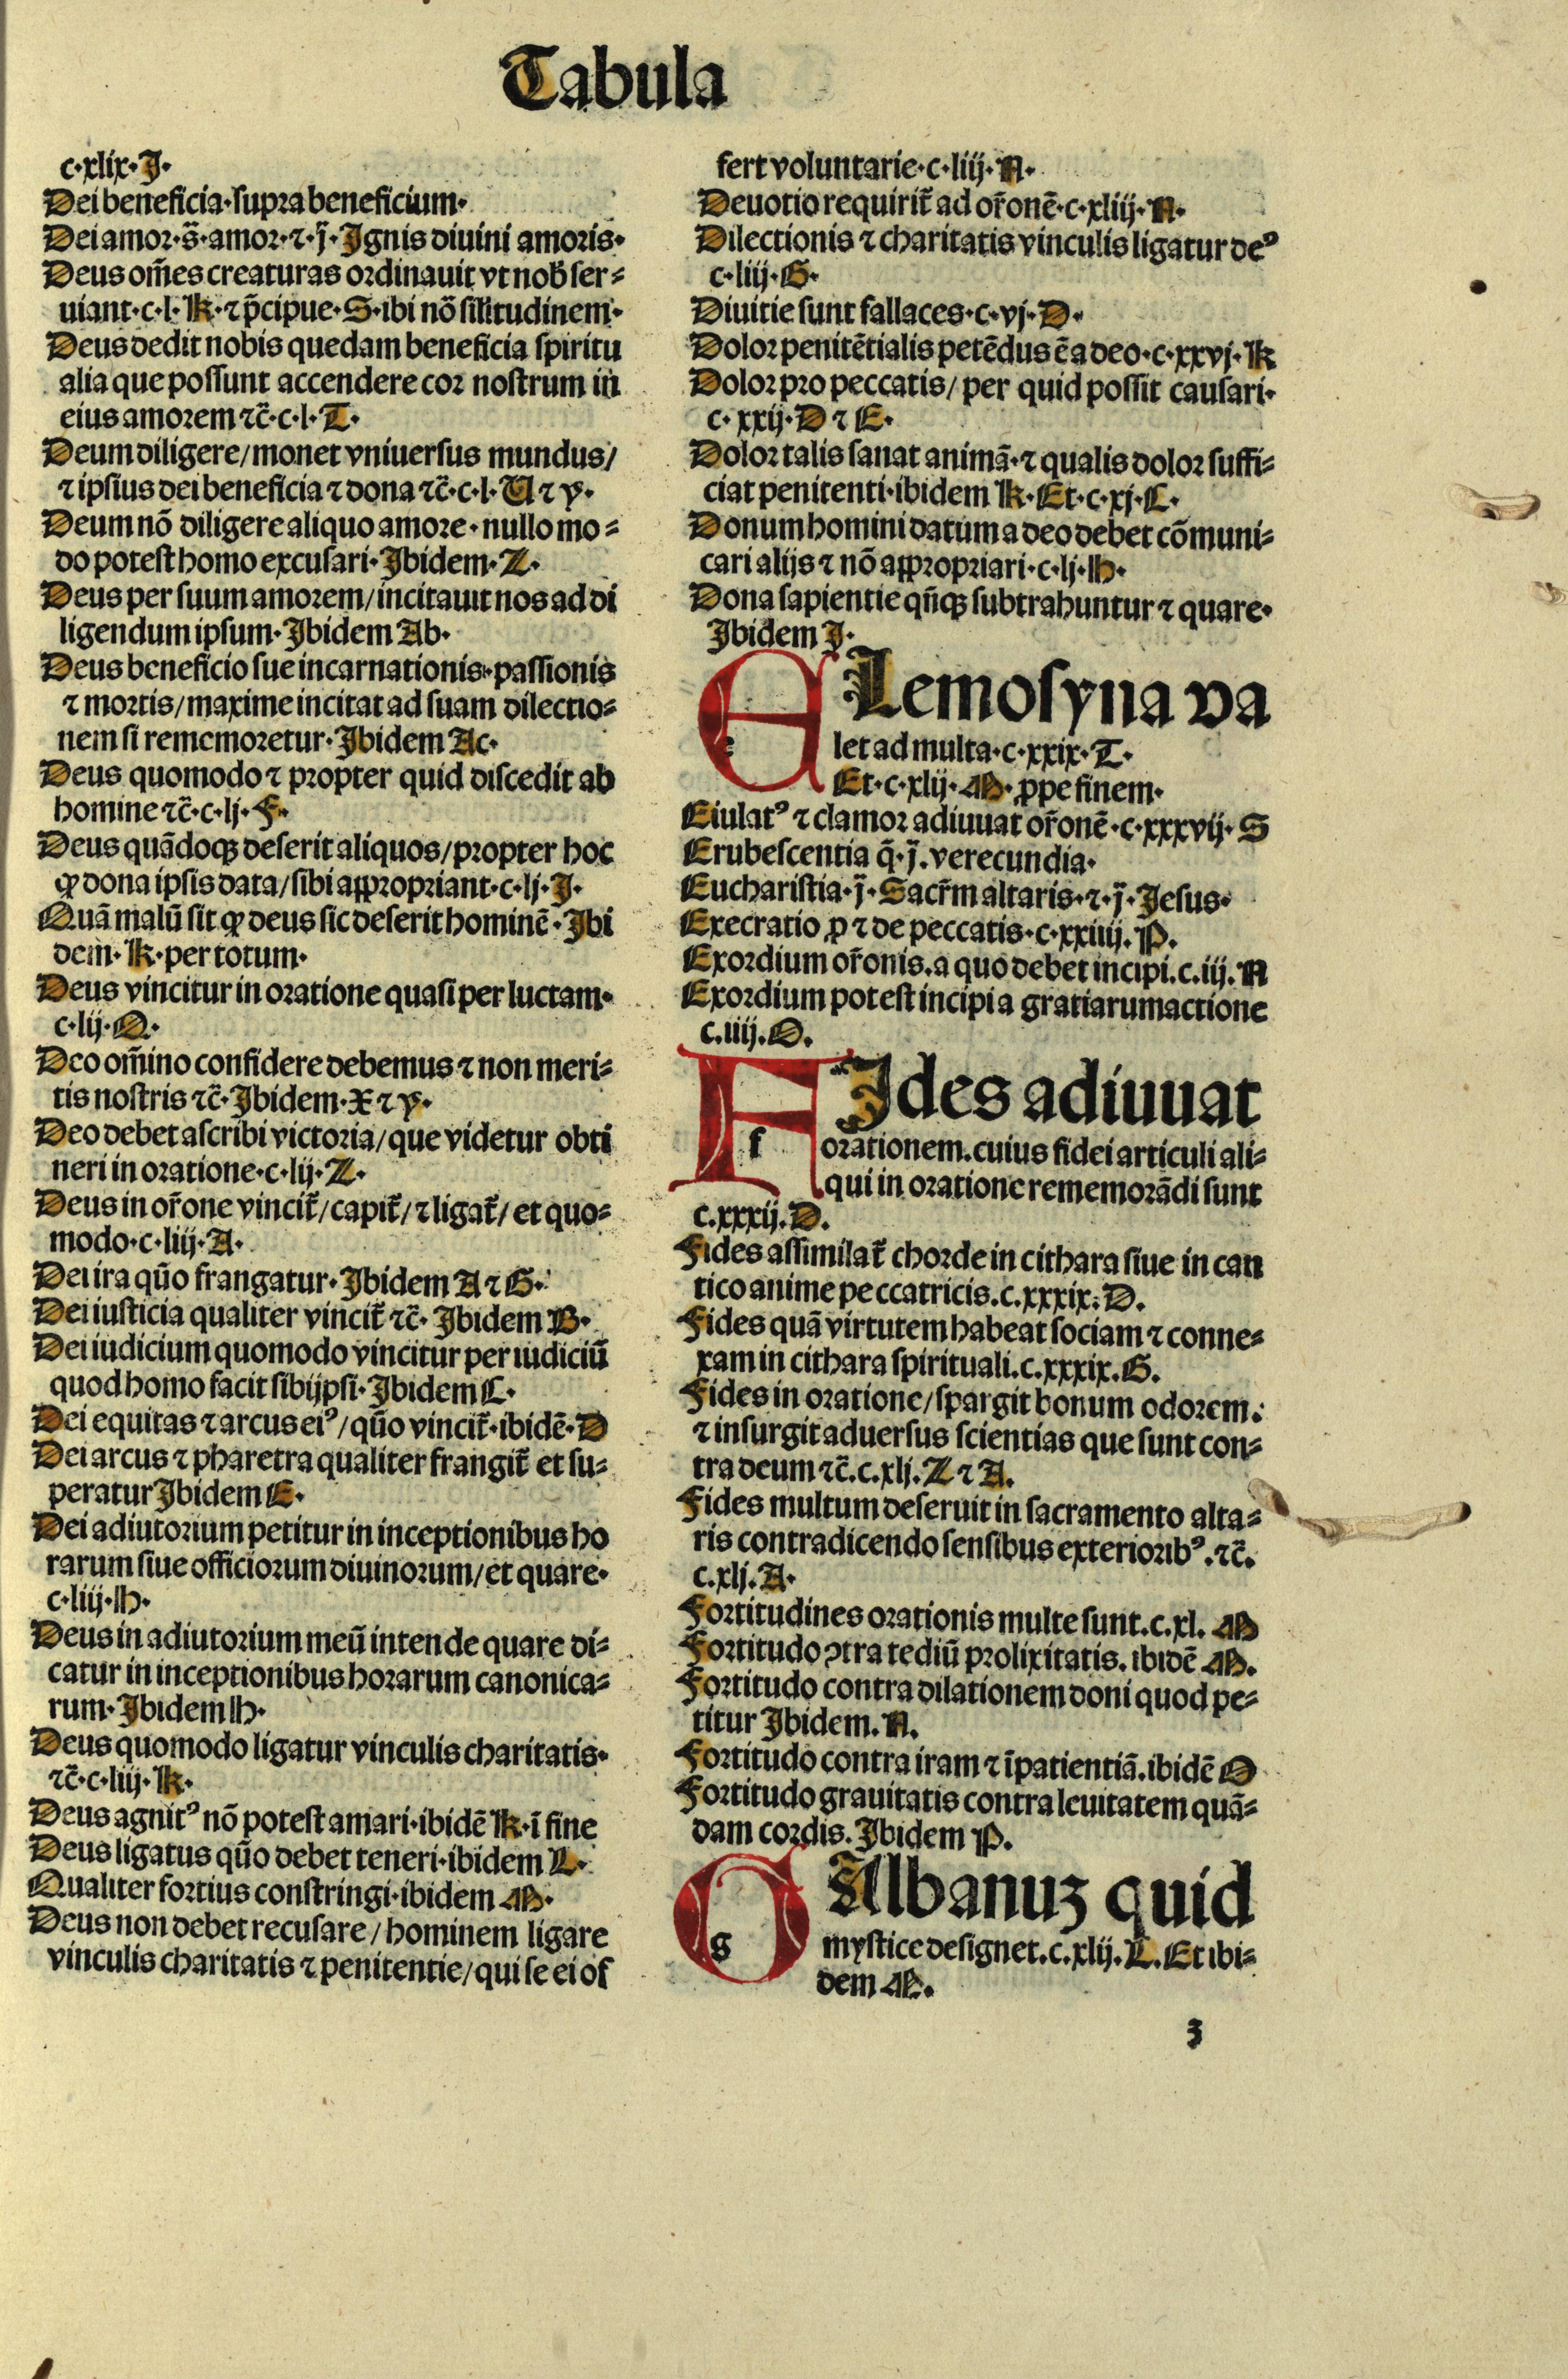 Tabula
c·xlix·J·
Dei beneficia·supra beneficium·
Dei amor·s̄·amor·⁊·j̄·Jgnis diuini amoris·
Deus om̄es creaturas ordinauit vt nob̄ ser⸗
uiant·c·l·K·⁊ p̄cipue·S·ibi nō silitudinem·
Deus dedit nobis quedam beneficia spiritu
alia que possunt accendere cor nostrum in
eius amorem ⁊c̄·c·l·T·
Deum diligere/monet vniuersus mundus/
⁊ ipsius dei beneficia ⁊ dona ⁊c̄·c·l·U ⁊ y·
Deum nō diligere aliquo amore·nullo mo⸗
do potest homo excusari·Jbidem·Z·
Deus per suum amorem/incitauit nos ad di
ligendum ipsum·Jbidem Ab·
Deus beneficio sue incarnationis·passionis
⁊ mortis/maxime incitat ad suam dilectio⸗
nem si rememoretur·Jbidem Ac·
Deus quomodo ⁊ propter quid discedit ab
homine ⁊c̄·c·lj·F·
Deus quādoqꝫ deserit aliquos/propter hoc
ꝙ dona ipsis data/sibi appropriant·c·lj·J·
Quā malū sit ꝙ deus sic deserit hominē·Jbi
dem·K·per totum·
Deus vincitur in oratione quasi per luctam·
c·lij·Q·
Deo om̄ino confidere debemus ⁊ non meri⸗
tis nostris ⁊c̄·Jbidem·X ⁊ y·
Deo debet ascribi victoria/que videtur obti
neri in oratione·c·lij·Z·
Deus in or̄one vincit̄/capit̄/⁊ ligat̄/et quo⸗
modo·c·liij·A·
Dei ira qūo frangatur·Jbidem A ⁊ G·
Dei iusticia qualiter vincit̄ ⁊c̄·Jbidem B·
Dei iudicium quomodo vincitur per iudiciū
quod homo facit sibijpsi·Jbidem C·
Dei equitas ⁊ arcus eiꝰ/qūo vincit̄·ibidē·D
Dei arcus ⁊ pharetra qualiter frangit̄ et su⸗
peratur Jbidem E·
Dei adiutorium petitur in inceptionibus ho
rarum siue officiorum diuinorum/et quare·
c·liij·H·
Deus in adiutorium meū intende quare di⸗
catur in inceptionibus horarum canonica⸗
rum·Jbidem H·
Deus quomodo ligatur vinculis charitatis·
⁊c̄·c·liij·K·
Deus agnitꝰ nō potest amari·ibidē K·ī fine
Deus ligatus qūo debet teneri·ibidem L·
Qualiter fortius constringi·ibidem M·
Deus non debet recusare/hominem ligare
vinculis charitatis ⁊ penitentie/qui se ei of
fert voluntarie·c·liij·N·
Deuotio requirit̄ ad or̄onē·c·xliij·N·
Dilectionis ⁊ charitatis vinculis ligatur deꝰ
c·liij·G·
Diuitie sunt fallaces·c·vj·D·
Dolor penitētialis petēdus ē a deo·c·xxvj·K
Dolor pro peccatis/per quid possit causari·
c·xxij·D ⁊ E·
Dolor talis sanat animā·⁊ qualis dolor suffi⸗
ciat penitenti·ibidem K·Et·c·xj·C·
Donum homini datum a deo debet cōmuni⸗
cari alijs ⁊ nō appropriari·c·lj·H·
Dona sapientie qn̄qꝫ subtrahuntur ⁊ quare·
Jbidem J·
ELemosyna va
let ad multa·c·xxix·T·
Et·c·xlij·M·ꝓpe finem·
Eiulatꝰ ⁊ clamor adiuuat or̄onē·c·xxxvij·S
Erubescentia q̄·j̄.verecundia·
Eucharistia·j̄·Sacr̄m altaris·⁊·j̄·Jesus·
Execratio ꝓ ⁊ de peccatis·c·xxiiij.P.
Exordium or̄onis.a quo debet incipi.c.iij.N
Exordium potest incipi a gratiarumactione
c.iiij.O.
FJdes adiuuat
orationem.cuius fidei articuli ali⸗
qui in oratione rememorādi sunt
c.xxxij.D.
Fides assimilat̄ chorde in cithara siue in can
tico anime peccatricis.c.xxxix.D.
Fides quā virtutem habeat sociam ⁊ conne⸗
xam in cithara spirituali.c.xxxix.G.
Fides in oratione/spargit bonum odorem.
⁊ insurgit aduersus scientias que sunt con⸗
tra deum ⁊c̄.c.xlj.Z ⁊ A.
Fides multum deseruit in sacramento alta⸗
ris contradicendo sensibus exterioribꝰ.⁊c̄.
c.xlj.A·
Fortitudines orationis multe sunt.c.xl.M
Fortitudo ↄtra tediū prolixitatis.ibidē M.
Fortitudo contra dilationem doni quod pe⸗
titur Jbidem.N.
Fortitudo contra iram ⁊ īpatientiā.ibidē O
Fortitudo grauitatis contra leuitatem quā⸗
dam cordis.Jbidem P.
GAlbanuꝫ quid
mystice designet.c.xlij.L.Et ibi⸗
dem M.
3